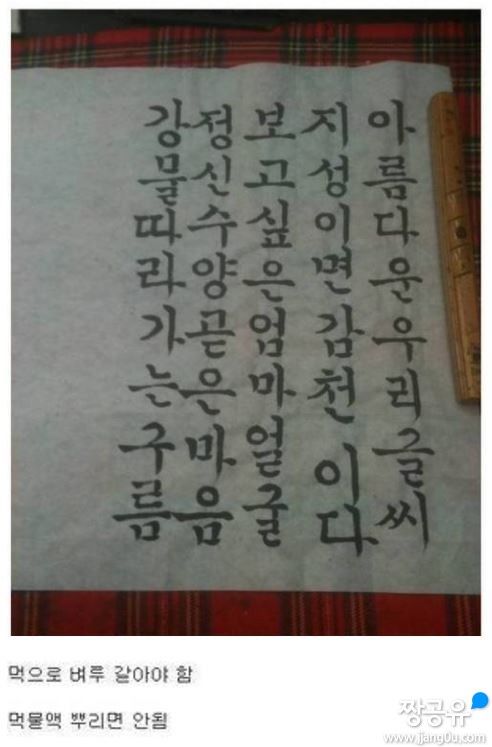 아름다운우리글씨
지성이면감천이다
보고싶은엄마얼굴
정신수양곧은마음
강물따라가는구름
먹으로 벼루 갈아야 함
먹물액 뿌리면 안됨
짱공유
www.jjang0u.com